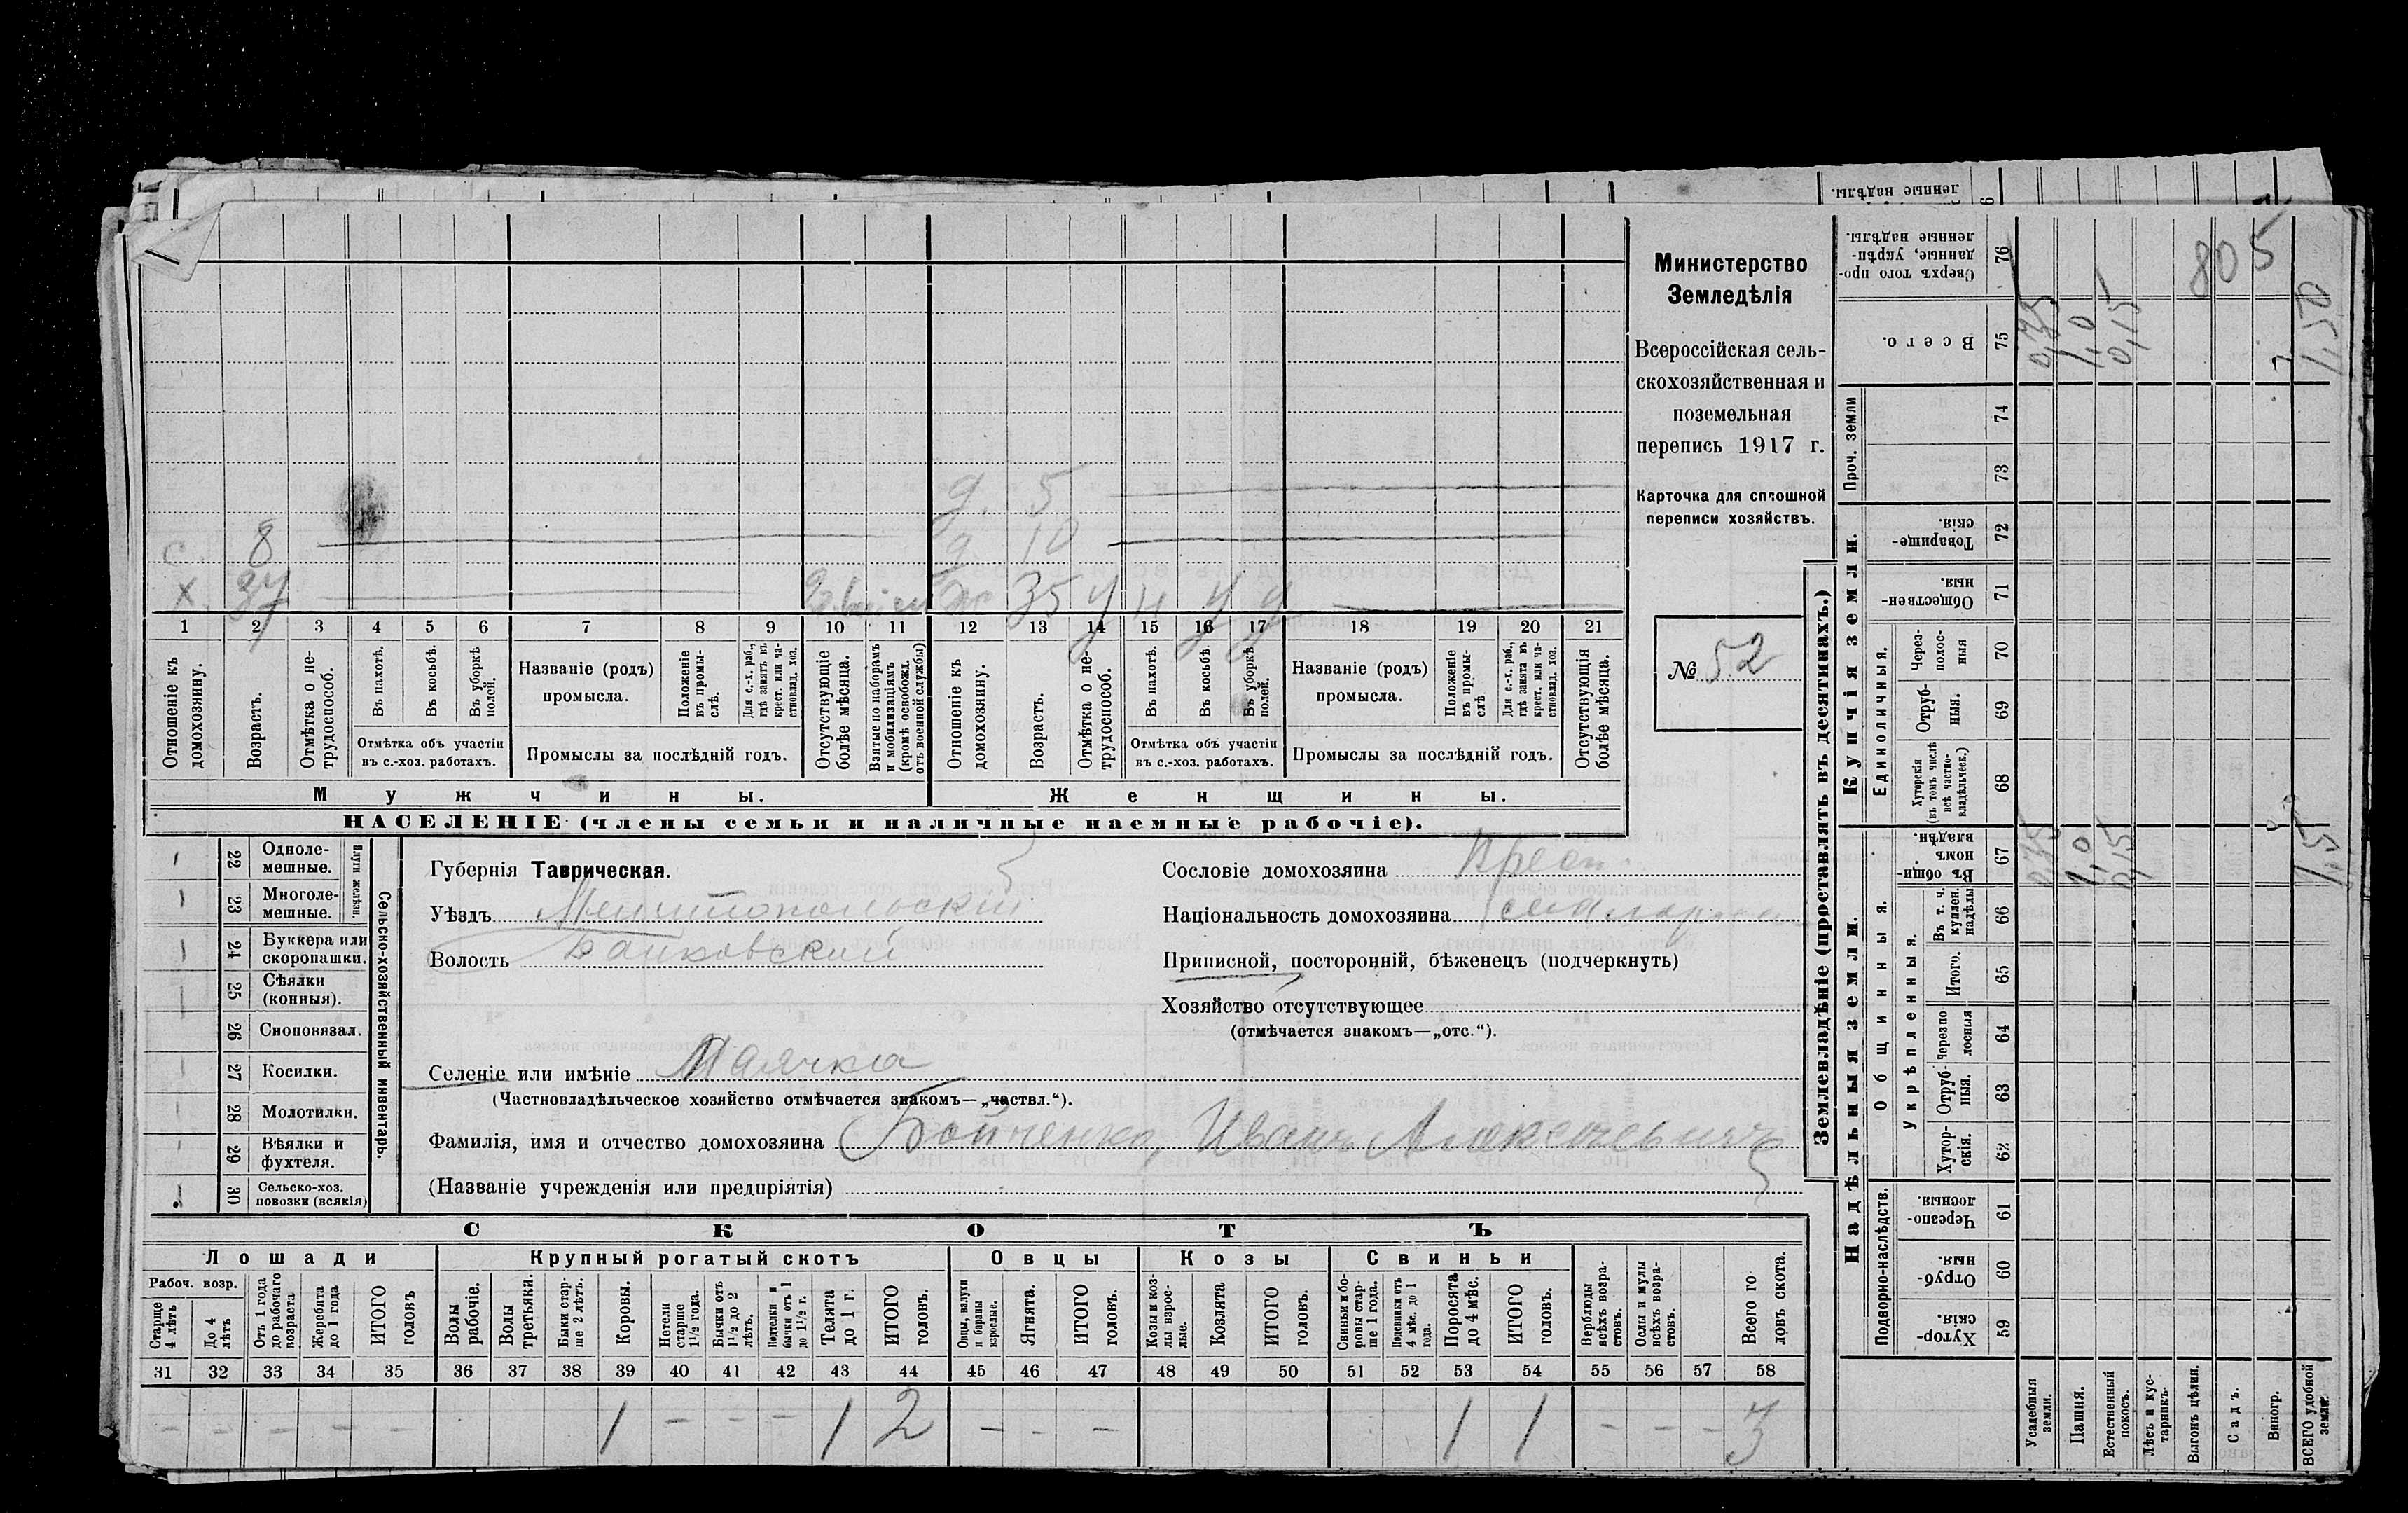 ленные надѣлы.
Министерство
Земледѣлія
Всероссійская сель-
скохозяйственная и
поземельная
перепись 1917 г.
Карточка для сплошной
переписи хозяйствъ.
№ 52
д. 5
с. 8 д. 10
х. 37 ж 35 у н у у
1 2 3 4 5 6 7 8 9 10 11 12 13 14 15 16 17 18 19 20 21
Отношеніе къ домохозяину.
Возрастъ.
Отмѣтка о не-трудоспособ.
Въ пахотѣ.
Въ косьбѣ.
Въ уборкѣ полей.
Отмѣтка объ участіи
въ с.-хоз. работахъ.
Названіе (родъ)
промысла.
Положеніе въ промы-слѣ.
Для с.-х. раб., гдѣ занятъ въ крест. или ча-стновлад. хоз.
Промыслы за послѣдній годъ.
Отсутствующіе болѣе мѣсяца.
Взятые по наборамъ и мобилизаціямъ (кромѣ освобожл. отъ военной службы)
Отношеніе къ домохозяину.
Возрастъ.
Отмѣтка о не-трудоспособ.
Въ пахотѣ.
Въ косьбѣ.
Въ уборкѣ полей.
Отмѣтка объ участіи
въ с.-хоз. работахъ.
Названіе (родъ)
промысла.
Положеніе въ промы-слѣ.
Для с.-х. раб., гдѣ занята въ крест. или ча-стновлад. хоз.
Промыслы за послѣдній годъ.
Отсутствующія болѣе мѣсяца.
Мужчины. Женщины.
НАСЕЛЕНІЕ (члены семьи и наличные наемные рабочіе).
22 Одноле-мешные.
23 Многоле-мешные.
Плуги желѣзн.
24 Буккера или скоропашки.
25 Сѣялки (конныя).
26 Сноповязал.
27 Косилки.
28 Молотилки.
29 Вѣялки и фухтеля.
30 Сельско-хоз. повозки (всякія)
Сельско-хозяйственный инвентарь.
Губернія Таврическая.
Уѣздъ Мелитопольскій
Волость
Селеніе или имѣніе Маячка
(Частновладѣльческое хозяйство отмѣчается знакомъ—„частвл.“).
Фамилія, имя и отчество домохозяина Бойченко, Иванъ Алексѣевичъ
(Названіе учрежденія или предпріятія)
Сословіе домохозяина Крест.
Національность домохозяина
Приписной, посторонній, бѣженецъ (подчеркнуть)
Хозяйство отсутствующее
(отмѣчается знакомъ—„отс.“).
СКОТЪ
Лошади Крупный рогатый скотъ Овцы Козы Свиньи
Рабоч. возр.
Старше 4 лѣтъ
До 4 лѣтъ
Отъ 1 года до рабочаго возраста
Жеребята до 1 года
ИТОГО головъ
Волы рабочіе.
Волы третьяки.
Быки стар-ше 2 лѣтъ.
Коровы.
Нетели старше 1½ года.
Бычки отъ 1½ до 2 лѣтъ.
Подтелки и бычки отъ 1 до 1½ г.
Телята до 1 г.
ИТОГО головъ.
Овцы, валухи и бараны взрослые.
Ягнята.
ИТОГО головъ.
Козы и коз-лы взрос-лые.
Козлята
ИТОГО головъ.
Свиньи и бо-ровы стар-ше 1 года.
Подсвинки отъ 4 мѣс. до 1 года.
Поросята до 4 мѣс.
ИТОГО головъ.
Верблюды всѣхъ возра-стовъ.
Ослы и мулы всѣхъ возра-стовъ.
Всего го-ловъ скота.
31 32 33 34 35 36 37 38 39 40 41 42 43 44 45 46 47 48 49 50 51 52 53 54 55 56 57 58
– – – – – 1 – – – 1 2 – – – 1 1 – – – 3
Землевладѣніе (проставлять въ десятинахъ.)
Надѣльныя земли. Купчія земли.
Подворно-наслѣдств.
Общинныя.
Укрѣпленныя.
Единоличныя.
Проч. земли
59 Хутор-скія.
60 Отруб-ныя.
61 Черезпо-лосныя.
62 Хутор-скія.
63 Отруб-ныя.
64 Черезпо-лосныя
65 Итого.
66 Въ т. ч. куплен. надѣлы
67 Въ общи-номъ владѣн.
68 Хуторскія (въ томъ числѣ всѣ частно-владѣльческ.)
69 Отруб-ныя.
70 Через-полос-ныя
71 Обществен-ныя.
72 Товарище-скія.
73
74
75 Всего.
76 Сверхъ того про-данные, укрѣп-ленные надѣлы.
Усадебныя земли. 0,35 0,35
Пашня. 1,0 1,0
Естественный покосъ. 0,15 0,15
Лѣсъ и кус-тарникъ.
Выгонъ цѣлин.
Садъ.
Виногр.
ВСЕГО удобной земли. 1,5 1,50
805